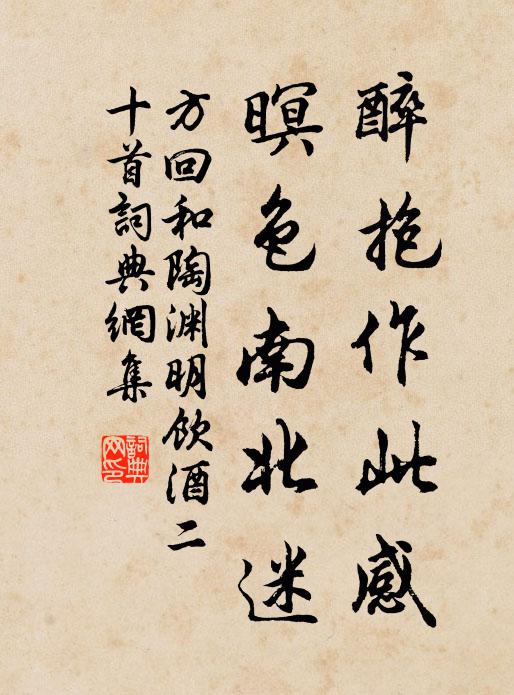 醉抱作此感
暝色南北迷
方回和陶渊明饮酒二
十首詞典網集
詞典
网印